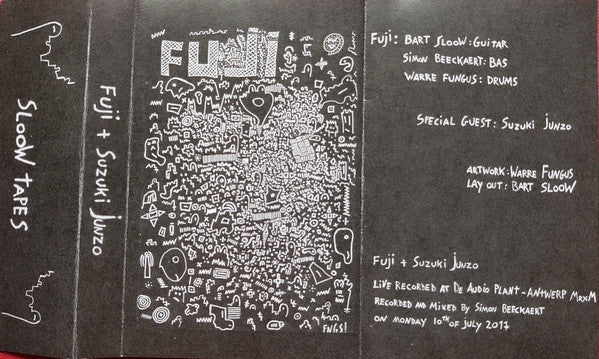 SLOOW TAPES
Fuji + Suzuki Junzo
FUJI
FNGS!
Fuji: BART SLOOW: GUITAR
SIMON BEECKAERT: BAS
WARRE FUNGUS: DRUMS
SPECIAL GUEST: SUZUKI JUNZO
ARTWORK: WARRE FUNGUS
LAY OUT: BART SLOOW
Fuji + Suzuki Junzo
LIVE RECORDED AT DE AUDIO PLANT - ANTWERP MRXM
RECORDED AND MIXED BY SIMON BEECKAERT
ON MONDAY 10th OF JULY 2017